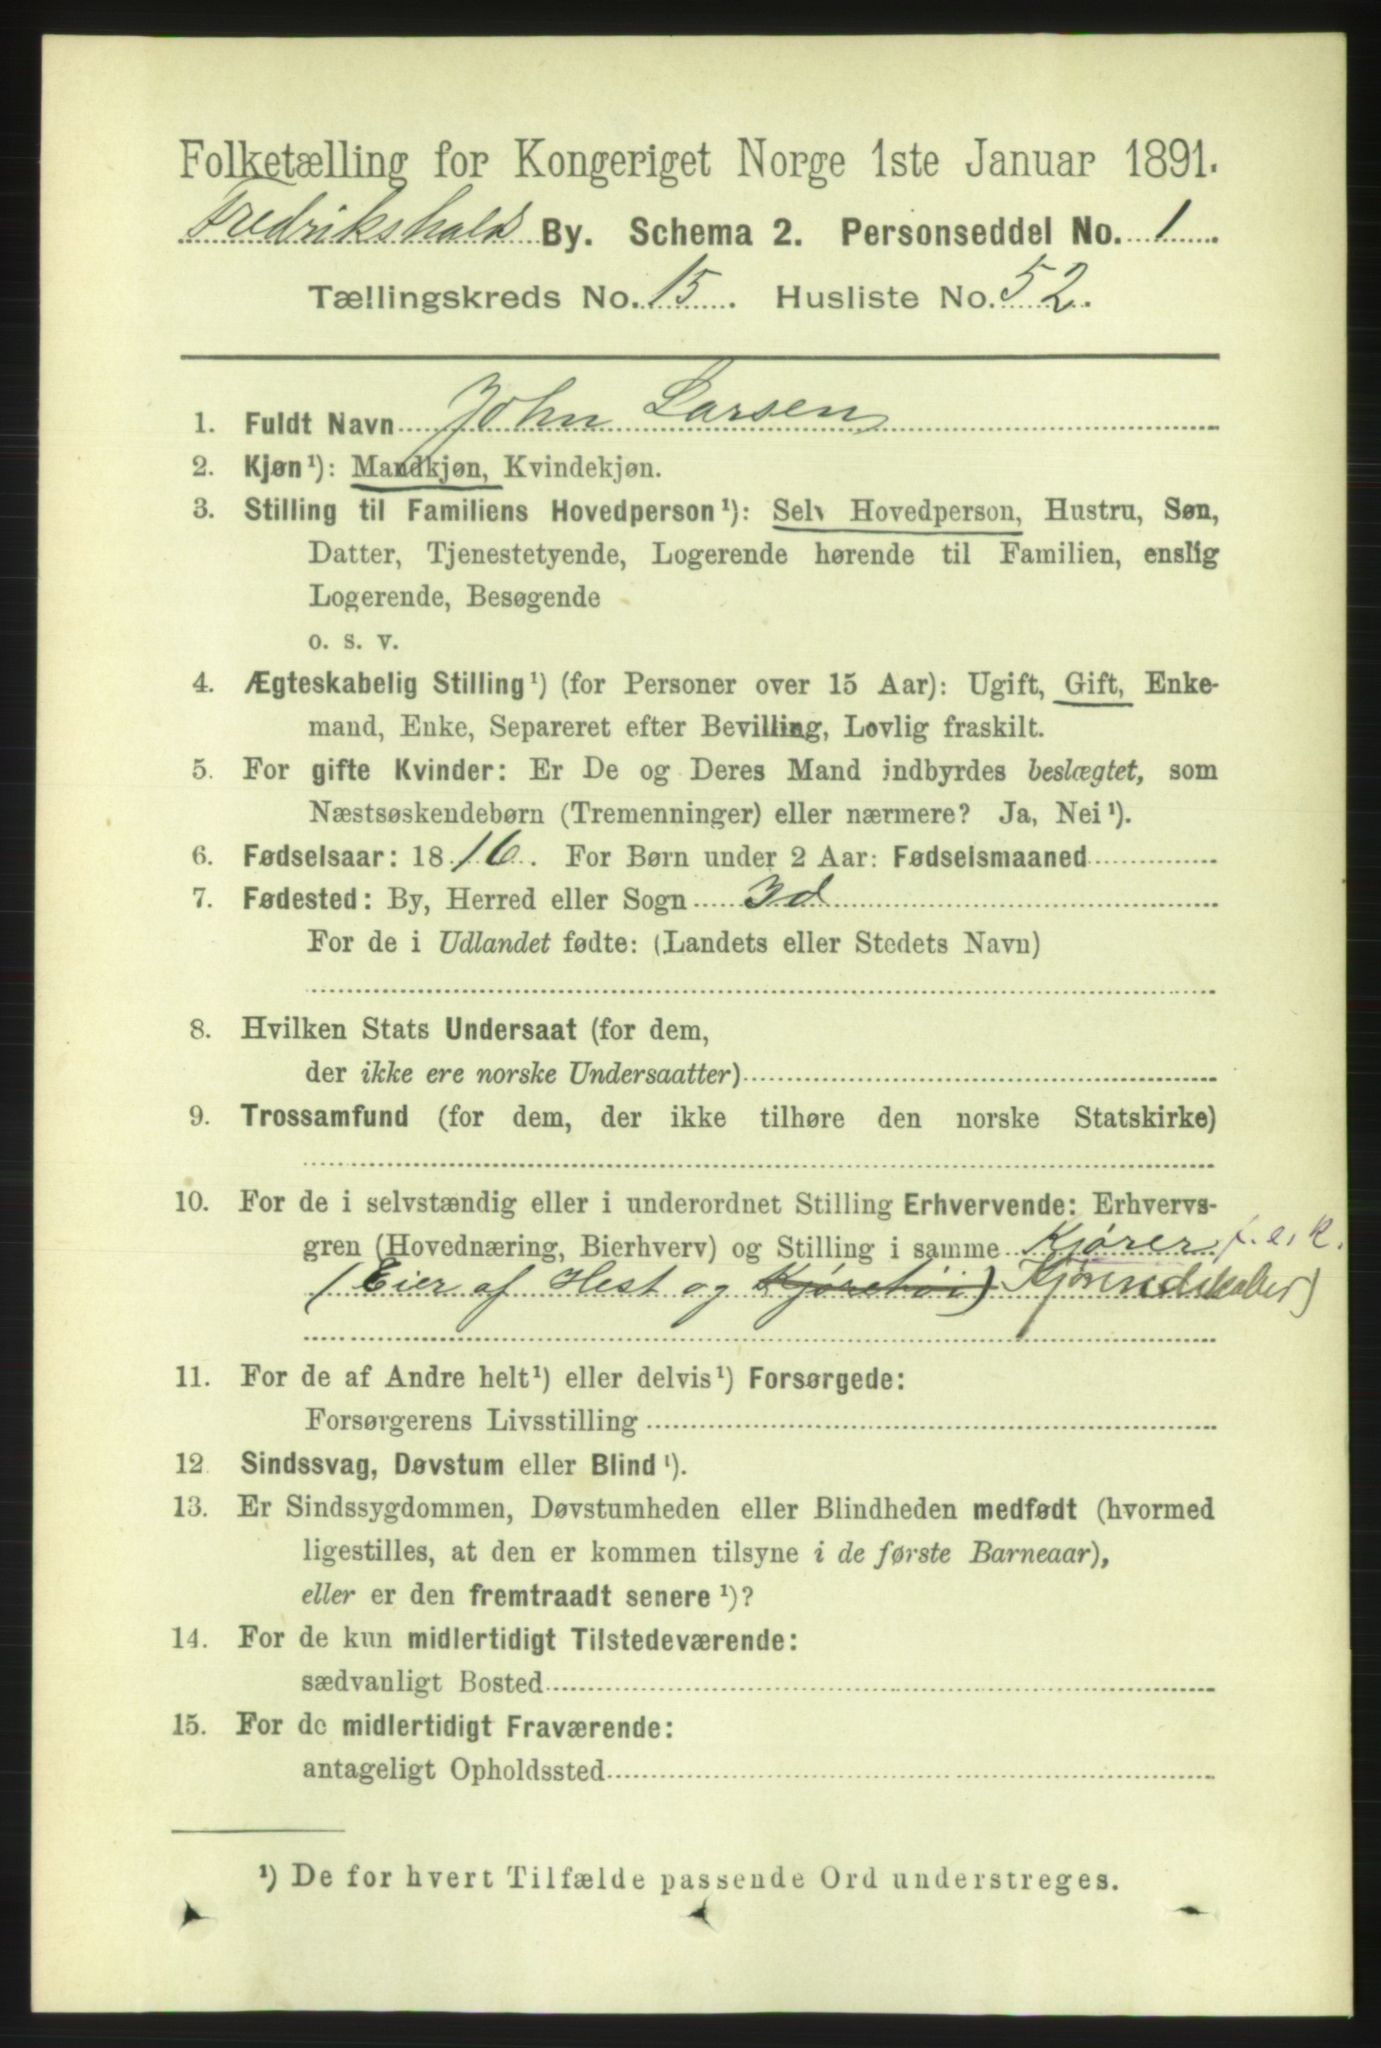 Folketælling for Kongeriget Norge 1ste Januar 1891.
Fredrikshald By. Schema 2. Personseddel No. 1
Tællingskreds No. 15. Husliste No. 52.
1. Fuldt Navn John Larsen
2. Kjøn¹): Mandkjøn, Kvindekjøn.
3. Stilling til Familiens Hovedperson¹): Selv Hovedperson, Hustru, Søn,
Datter, Tjenestetyende, Logerende hørende til Familien, enslig
Logerende, Besøgende
o. s. v.
4. Ægteskabelig Stilling¹) (for Personer over 15 Aar): Ugift, Gift, Enke-
mand, Enke, Separeret efter Bevilling, Lovlig fraskilt.
5. For gifte Kvinder: Er De og Deres Mand indbyrdes beslægtet, som
Næstsøskendebørn (Tremenninger) eller nærmere? Ja, Nei¹).
6. Fødselsaar: 1816. For Børn under 2 Aar: Fødselsmaaned
7. Fødested: By, Herred eller Sogn Id
For de i Udlandet fødte: (Landets eller Stedets Navn)
8. Hvilken Stats Undersaat (for dem,
der ikke ere norske Undersaatter)
9. Trossamfund (for dem, der ikke tilhøre den norske Statskirke)
10. For de i selvstændig eller i underordnet Stilling Erhvervende: Erhvervs-
gren (Hovednæring, Bierhverv) og Stilling i samme Kjører f. e. R.
(Eier af Hest og Kjøretøi)
11. For de af Andre helt¹) eller delvis¹) Forsørgede:
Forsørgerens Livsstilling
12 Sindssvag, Døvstum eller Blind¹).
13. Er Sindssygdommen, Døvstumheden eller Blindheden medfødt (hvormed
ligestilles, at den er kommen tilsyne i de første Barneaar),
eller er den fremtraadt senere¹)?
14. For de kun midlertidigt Tilstedeværende:
sædvanligt Bosted
15. For de midlertidigt Fraværende:
antageligt Opholdssted
¹) De for hvert Tilfælde passende Ord understreges.